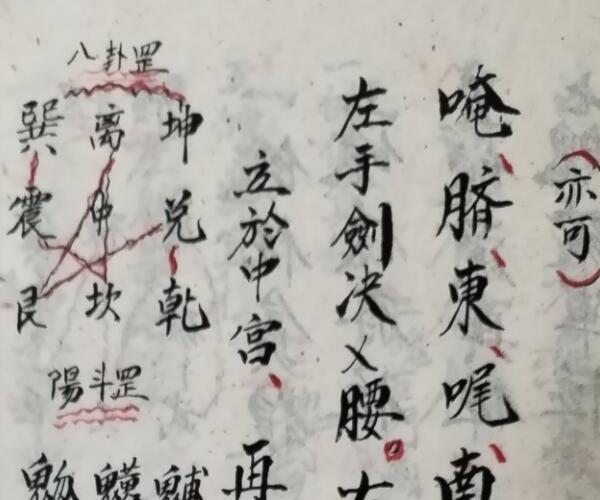 （亦可）
唵、脐、東、呢、南
左手劍决乂腰。
立於中宫、再
八卦罡
坤兑乾
离中坎
巽震艮
陽斗罡